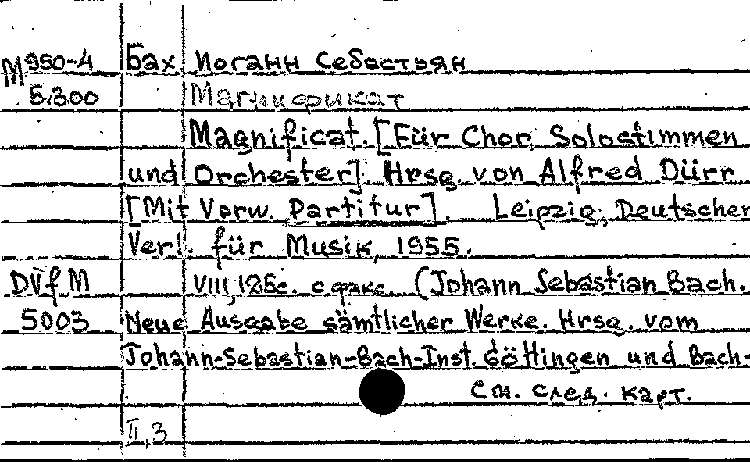 М 950-4 Бах Иоганн Себастьян
5.300 Магнификат
Magnificat. [Für Chor, Solostimmen
und Orchester]. Hrsg. von Alfred Dürr
[Mit Vorw. Partitur]. Leipzig, Deutscher
Verl. für Musik, 1955.
DVfM VIII, 126с. с факс. (Johann Sebastian Bach.
5003 Neue Ausgabe sämtlicher Werke. Hrsg. vom
Johann-Sebastian-Bach-Inst. Göttingen und Bach-
См. след. карт.
II,3